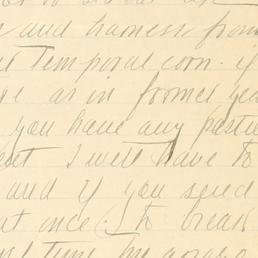 and harness from
Temporal corn. if
as in former yea
you have any pastu
I will have to
and if you send
at once. to break
time